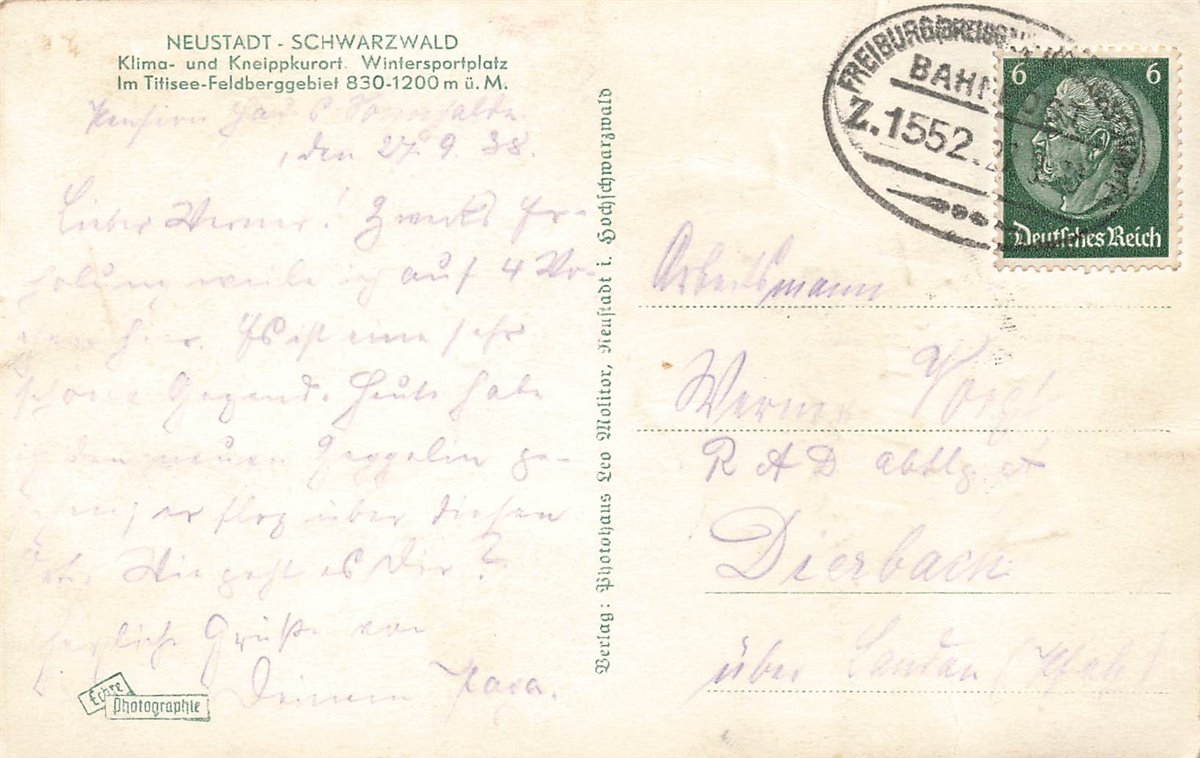 NEUSTADT - SCHWARZWALD
Klima- und Kneippkurort. Wintersportplatz
Im Titisee-Feldberggebiet 830-1200 m ü. M.
Pension Haus Sonnhalde
, den 27. 9. 38.
Lieber Werner. Zwecks Er-
holung weile ich auf 4 Wo-
chen hier. Es ist eine sehr
schöne Gegend. Heute habe
den neuen Zeppelin ge-
er flog über diesen
Wie geht es Dir?
Herzliche Grüße von
Deinem Papa
Echte
Photographie
Verlag: Photohaus Leo Molitor, Neustadt i. Hochschwarzwald
FREIBURG (BREISGAU)
BAHNPOST
Z. 1552
6 6
Deutsches Reich
Arbeitsmann
Werner
R A D abtlg.
Dierbach
über Landau (Pfalz)